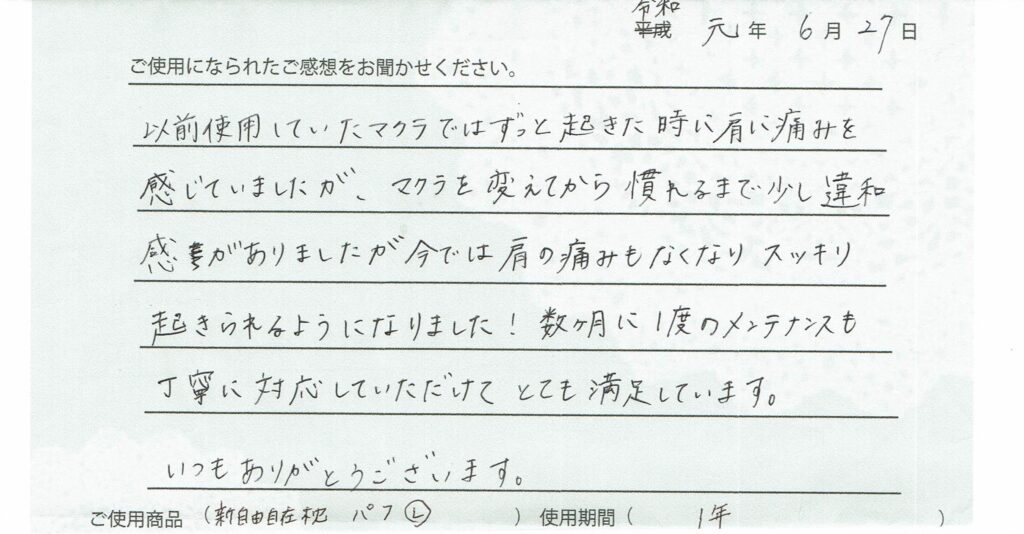 令和
平成 元年 6月 27日
ご使用になられたご感想をお聞かせください。
以前使用していたマクラではずっと起きた時に肩に痛みを
感じていましたが、マクラを変えてから慣れるまで少し違和
感がありましたが今では肩の痛みもなくなりスッキリ
起きられるようになりました！数ヶ月に1度のメンテナンスも
丁寧に対応していただけてとても満足しています。
いつもありがとうございます。
ご使用商品（新自由自在枕 パフ Ⓛ） 使用期間（1年）